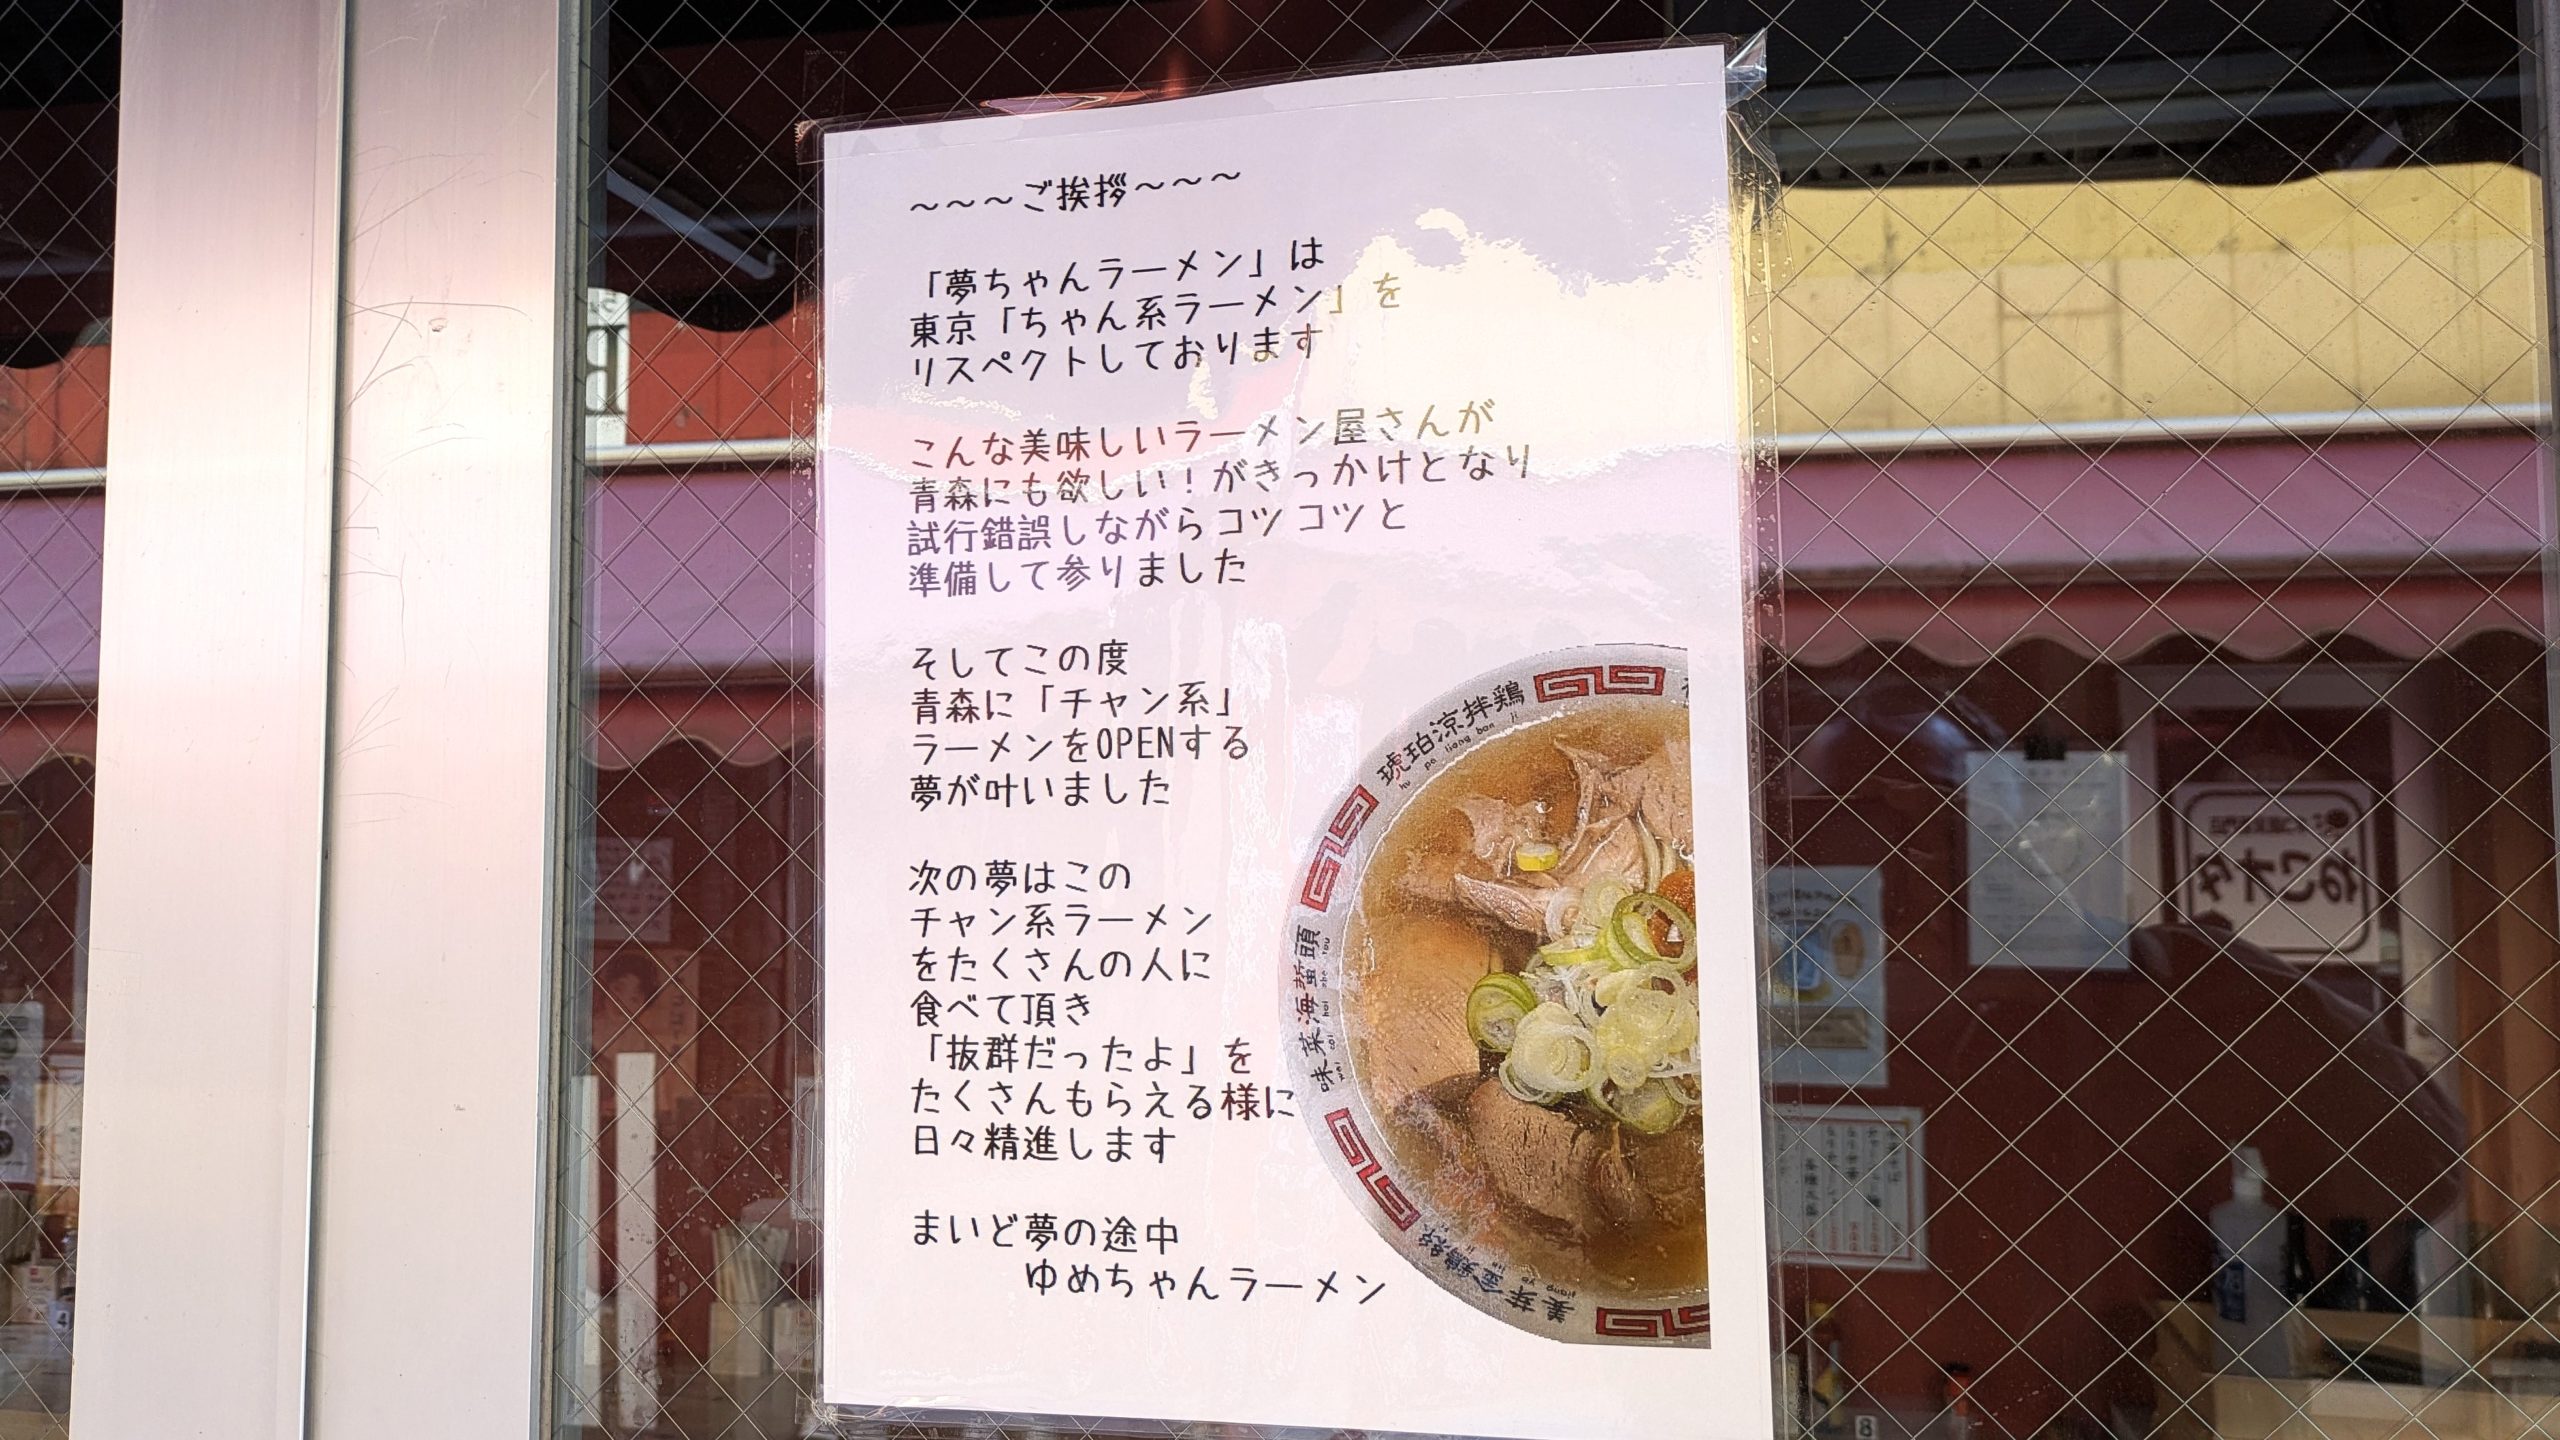 ～～～ご挨拶～～～
「夢ちゃんラーメン」は
東京「ちゃん系ラーメン」を
リスペクトしております
こんな美味しいラーメン屋さんが
青森にも欲しい！がきっかけとなり
試行錯誤しながらコツコツと
準備して参りました
そしてこの度
青森に「チャン系」
ラーメンをOPENする
夢が叶いました
次の夢はこの
チャン系ラーメン
をたくさんの人に
食べて頂き
「抜群だったよ」を
たくさんもらえる様に
日々精進します
まいど夢の途中
ゆめちゃんラーメン
琥珀涼拌鶏
hu po liang ban ji
味菜海蜇頭
wei cai hai zhe tou
ねこオタ
4
8